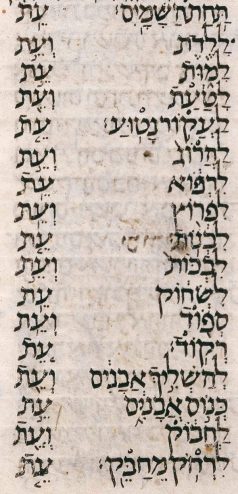 תַּחַת הַשָּׁמָיִם עֵת
לָלֶדֶת וְעֵת
לָמוּת עֵת
לָטַעַת וְעֵת
לַעֲקוֹר נָטוּעַ׃ עֵת
לַהֲרוֹג וְעֵת
לִרְפּוֹא עֵת
לִפְרוֹץ וְעֵת
לִבְנוֹת׃ עֵת
לִבְכּוֹת וְעֵת
לִשְׂחוֹק עֵת
סְפוֹד וְעֵת
רְקוֹד׃ עֵת
לְהַשְׁלִיךְ אֲבָנִים וְעֵת
כְּנוֹס אֲבָנִים עֵת
לַחֲבוֹק וְעֵת
לִרְחֹק מֵחַבֵּק׃ עֵת